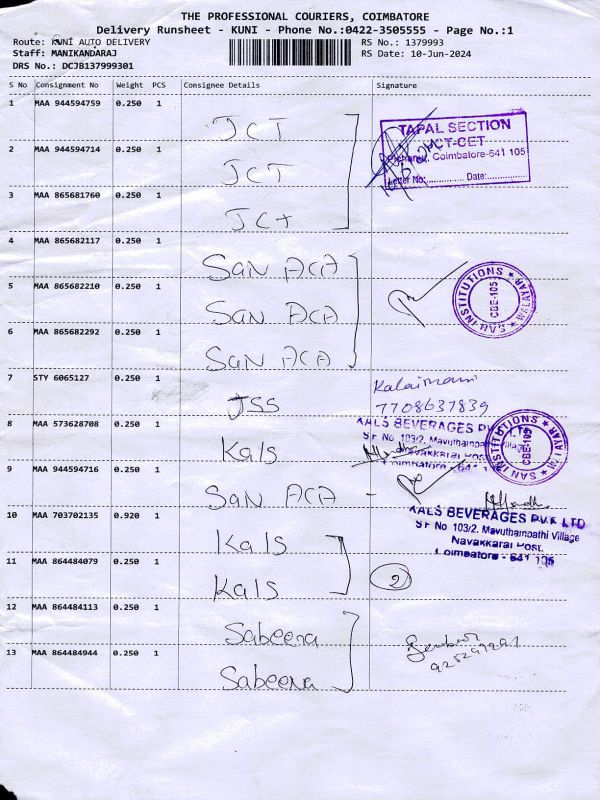 THE PROFESSIONAL COURIERS, COIMBATORE
Delivery Runsheet - KUNI - Phone No.:0422-3505555 - Page No.:1
Route: KUNI AUTO DELIVERY
RS No.: 1379993
Staff: MANIKANDARAJ
RS Date: 10-Jun-2024
DRS No.: DCJB137999301
S No Consignment No Weight PCS Consignee Details Signature
1 MAA 944594759 0.250 1 JCT
TAPAL SECTION
JCT-CET
Pichanur, Coimbatore-641 105
Letter No:............. Date:.............
2 MAA 944594714 0.250 1 JCT
3 MAA 865681760 0.250 1 JCT
4 MAA 865682117 0.250 1 SAN ACA
5 MAA 865682210 0.250 1 SAN ACA
SAN INSTITUTIONS WALAYAR
CBE-105
6 MAA 865682292 0.250 1 SAN ACA
7 STY 6065127 0.250 1 JSS
Kalaimani
7708637839
8 MAA 573628708 0.250 1 Kals
KALS BEVERAGES PVT LTD
SF No 103/2, Mavuthampathi Village
Navakkarai Post
Coimbatore - 641 105
SAN INSTITUTIONS WALAYAR
CBE-105
9 MAA 944594716 0.250 1 SAN ACA -
10 MAA 703702135 0.920 1 Kals
KALS BEVERAGES PVT LTD
SF No 103/2, Mavuthampathi Village
Navakkarai Post.
Coimbatore - 641 105
11 MAA 864484079 0.250 1 Kals
2
12 MAA 864484113 0.250 1 Sabeena
13 MAA 864484944 0.250 1 Sabeena